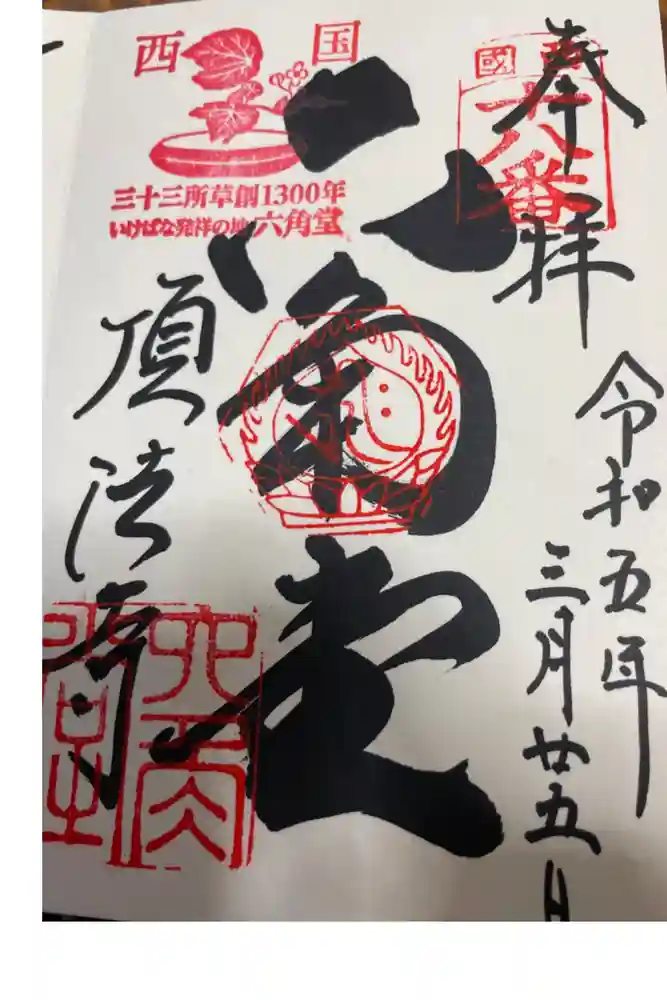 奉拝
令和五年
三月廿五日
西国
十八番
六角堂
三十三所草創1300年
いけばな発祥の地 六角堂
頂法寺
六角堂